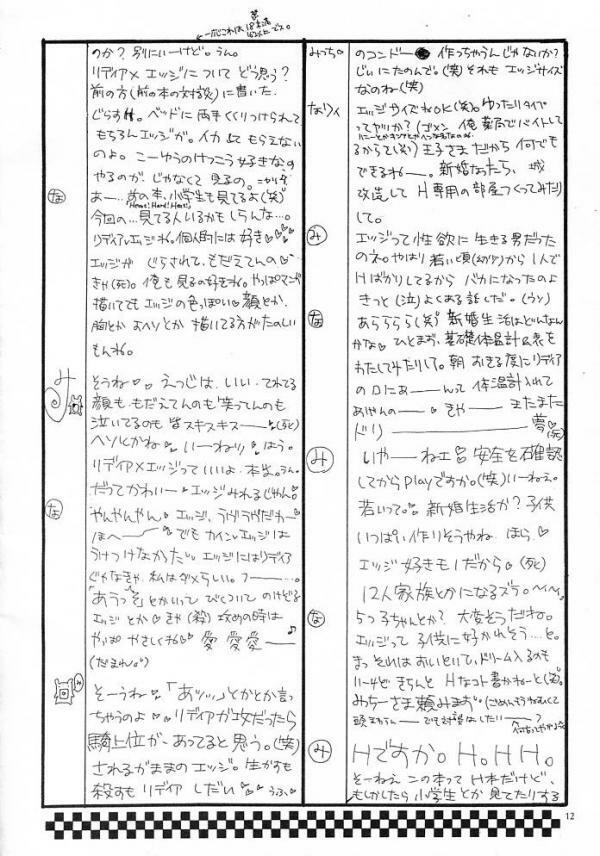 のか？別にいーけど。うん。
リディア×エッジについて どう思う？
前の方(前の本の対談)に書いた
ベッドに両手くくりつけられて
もちろんエッジが。イカしてもらえない
のよ。こーゆうのけっこう好きなの
やるのが じゃなくて 見るの。
な
あー…前の本、小学生も見てるよ(笑)
今回の…見てる人いるかもしらんな…。
個人的には好き♡
エッジが
きゃ(死)。俺も見るの好きね。やっぱマンガ
描いてても エッジの色っぽい♡顔とか、
胸とか おヘソとか 描いてる方がたのしい
もんね。
み
そうね♡♡ えっじは、いい。てれてる
顔も、もだえてんのも笑ってんのも
泣いてるのも 皆スキスキスー(死)
ヘソとかね♡ いーねっ♡ ほう。
リディア×エッジっていいよ、本当。うん。
だってかわいー♡エッジみれるじゃん。
な
やんやんやん♡エッジ、
ほへ〜〜 でも カイン×エッジは
うけつけなかったい、エッジにはリディア
じゃなきゃ、私はダメらしい。フー…。
「あうっ♡」とかいって びくついて のけぞる
エッジ とか♡ きゃ(殺) 攻めの時は
やっぱ やさしくね♡愛 愛 愛ー♪
(だまれ。)
み
そーうね♡「あッッ♡」とかとか言っ
ちゃうのよ♡♡リディアが攻だったら
騎上位が、あってると思う。(笑)
されるがままのエッジ。生かすも
殺すもリディアしだい♡♡うふ♡
みっち。
のコンドー● 作っちゃうんじゃないか？
じいにたのんで。(笑) それも エッジサイズ
なのね(笑)
エッジサイズねOK(笑)。ゆったりタイプ
ってヤツか？(ゴメン 俺 薬局でバイトして
るからて(笑)) 王子さまだから 何でも
できるねー。新婚なったら、城
改造して H専用の部屋つくってみたり
して。
み
エッジって性欲に 生きる男だった
のネ。やはり 若い頃から1人で
Hばかりしてるから バカになったのよ
きっと(泣) よくある話しだ。(ウン)
な
あらららら(笑) 新婚生活はどんなん
かな♡ ひとまず、基礎体温計&表を
わたしてみたりして。朝 おきる度にリディア
の口にあーーんって 体温計入れて
♡きゃー またまた
ドリーーーー夢(死)
み
いやーーねェ♡安全を確認
してからplayですか。(笑) いーねえ。
若いって。♡ 新婚生活か？子供
いっぱい 作りそうやね ほら♡
エッジ 好きモノだから♡(死)
12人家族とかになるズラ。
な
5つ子ちゃんとか？ 大変そうだね。
エッジって 子供に好かれそう…と。
まっ、それはおいといて、ドリーム入るのも
いーけど きちんと Hなコト書かねーと(笑)。
みちーさま頼みます。
み
Hですか。H。HH。
そーねえ この本って H本だけど、
もしかしたら小学生とか 見てたりする
12